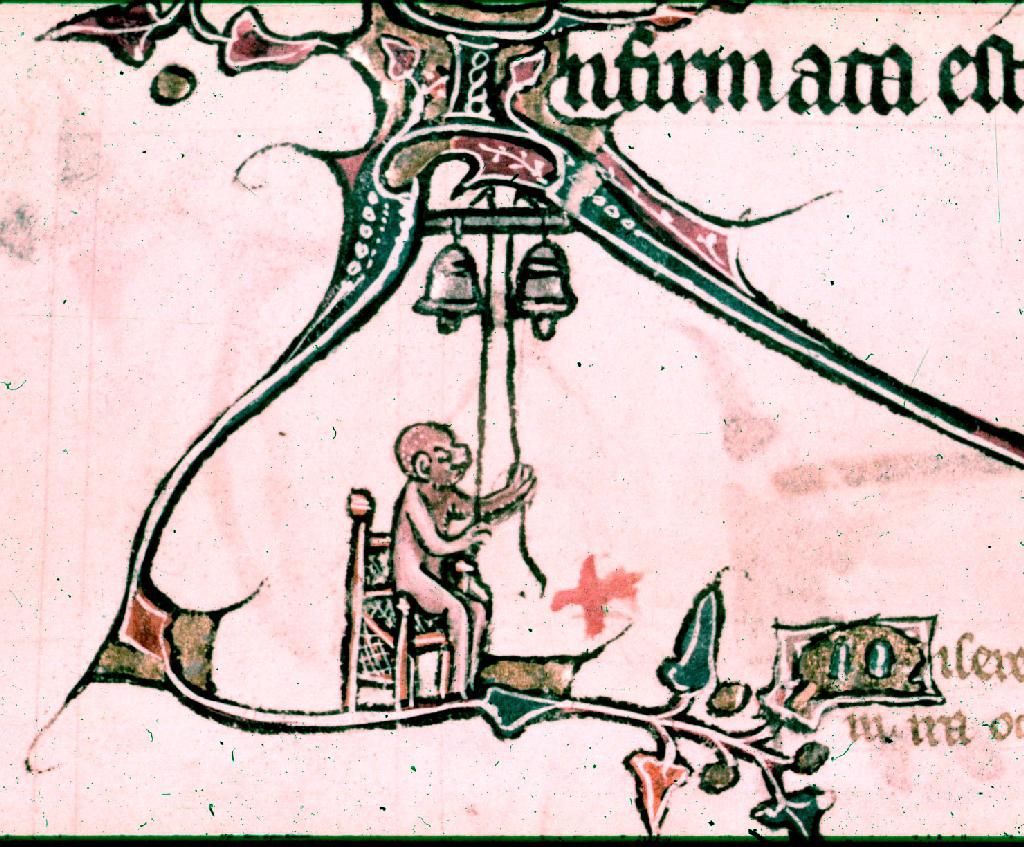 Infirmata est
Misere
in ira